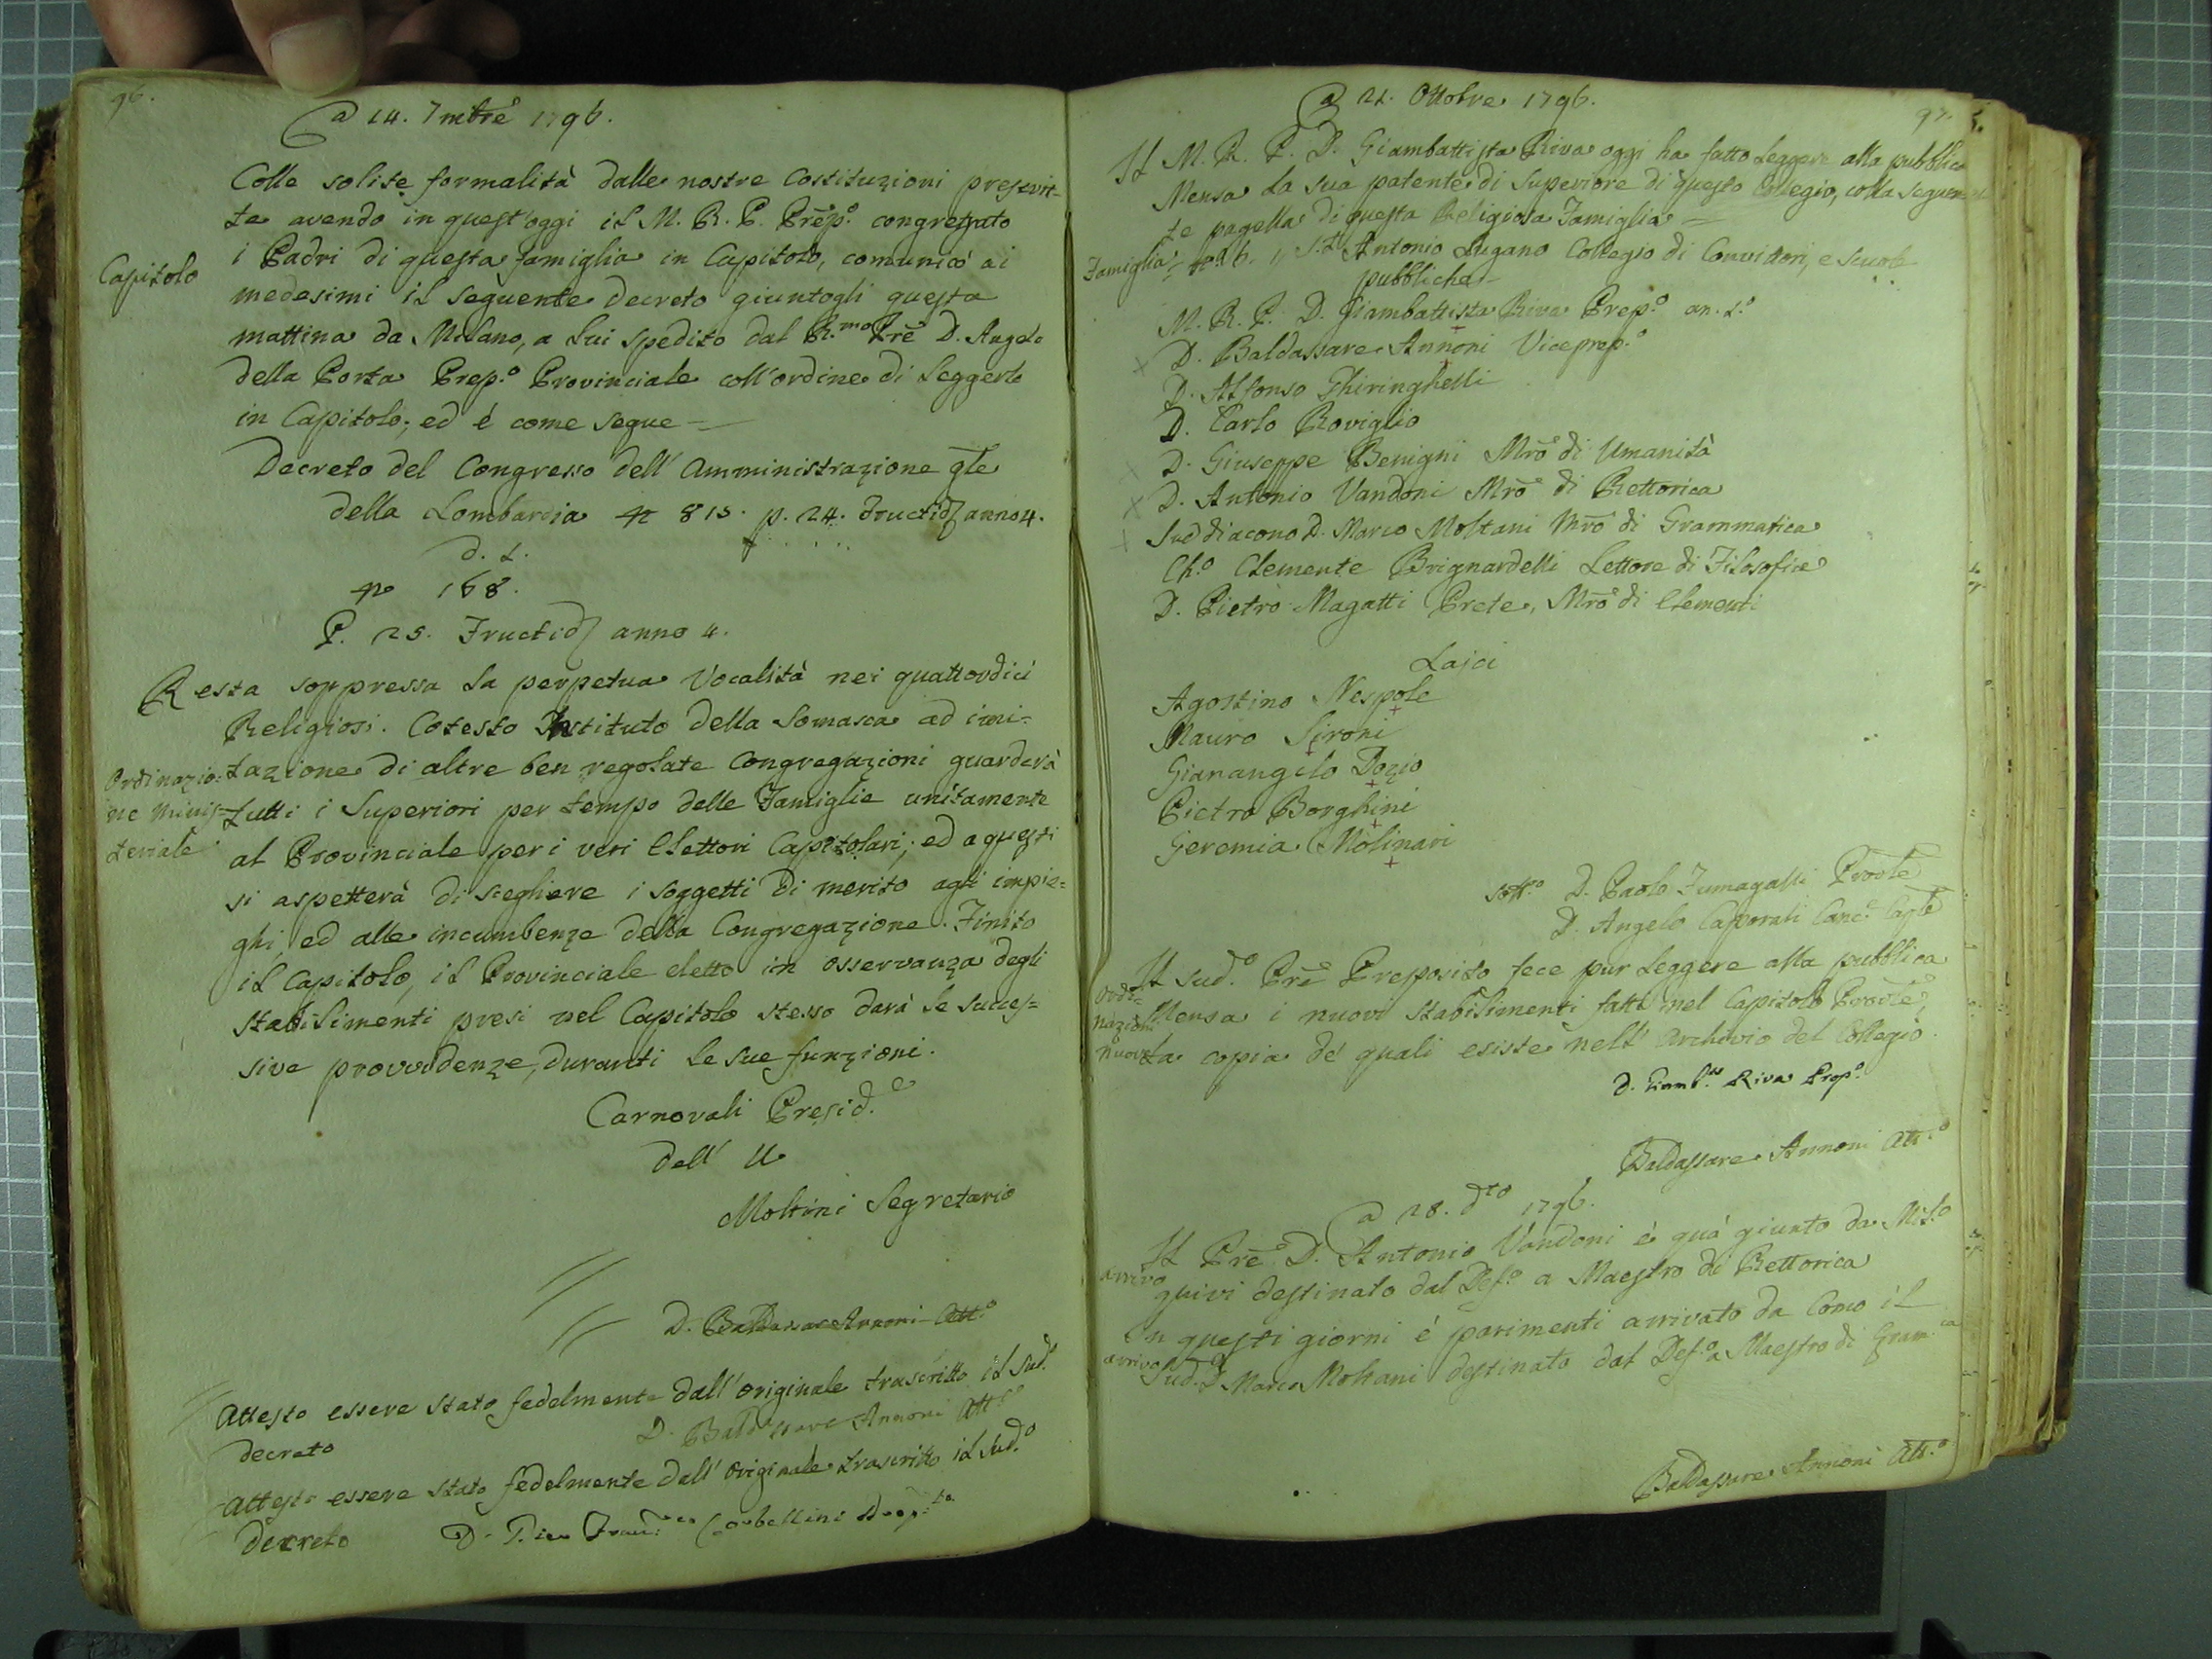 96.
a 14. 7mbre 1796.
Colle solite formalità dalle nostre Costituzioni prescrit=
te avendo in quest'oggi il M. R. P. Prep.o congregato
Capitolo
i Padri di questa famiglia in Capitolo, comunicò ai
medesimi il seguente decreto giuntogli questa
mattina da Milano, a lui spedito dal R.mo Pre D. Angelo
della Porta Prep.o Provinciale coll'ordine di leggerlo
in Capitolo; ed è come segue =
Decreto del Congresso dell'Amministrazione gle
della Lombardia N 815. p. 24. Fructid anno 4.
d. L.
N 168.
P. 25. Fructid anno 4.
Resta soppressa la perpetua Vocalità nei quattordici
Religiosi. Cotesto Instituto della Somasca ad imi=
Ordinazio=
ne Minis=
teriale
tazione di altre ben regolate Congregazioni guarderà
tutti i Superiori per tempo delle Famiglie unitamente
al Provinciale per i veri Elettori Capitolari; ed a questi
si aspetterà di scegliere i soggetti di merito agli impie=
ghi, ed alle incumbenze della Congregazione. Finito
il Capitolo, il Provinciale eletto in osservanza degli
stabilimenti presi nel Capitolo stesso darà le succes=
sive provvidenze, duranti le sue funzioni.
Carnovali Presid.e
dell' U
Moltini Segretario
D. Baldassare Annoni Att.o
Attesto essere stato fedelmente dall'originale trascritto il Sud.o
decreto
D. Baldassare Annoni Att.o
Attesto essere stato fedelmente dall'originale trascritto il sud.o
decreto D. Pier Fran.co Corbellini Prep.to
97.
a 21. Ottobre 1796.
Il M. R. P. D. Giambattista Riva oggi ha fatto leggere alla pubblica
Mensa la sua patente di Superiore di questo Collegio, colla seguen=
te pagella di questa Religiosa Famiglia =
Famiglia
S.t Antonio Lugano Collegio di Convittori, e scuole
pubbliche
M. R. P. D. Giambattista Riva Prep.o an. 1.o
D. Baldassare Annoni Viceprep.o
D. Alfonso Ghiringhelli
D. Carlo Roviglio
D. Giuseppe Benigni Mro di Umanità
D. Antonio Vandoni Mro di Rettorica
Suddiacono D. Marco Moltani Mro di Grammatica
Ch.o Clemente Brignardelli Lettore di Filosofia
D. Pietro Magatti Prete, Mro di Elementi
Laici
Agostino Nespole
Mauro Sironi
Gianangelo Dozio
Pietro Borghini
Geremia Molinari
sott.o D. Paolo Fumagalli Provle
D. Angelo Caporali Canc.e Caple
Il sud.o Pre Preposito fece pur leggere alla pubblica
Ordi=
nazioni
nuove
Mensa i nuovi stabilimenti fatti nel Capitolo Provle,
la copia de' quali esiste nell'Archivio del Collegio.
D. Giamb.a Riva Prep.o
Baldassare Annoni Att.o
a 28. dto 1796.
Il Pre D. Antonio Vandoni è quà giunto da Mil.o
arrivo
quivi destinato dal Def.o a Maestro di Rettorica
In questi giorni è parimenti arrivato da Como il
arrivo
Sud. D. Marco Moltani destinato dal Def.o a Maestro di Gram.ca
Baldassare Annoni Att.o